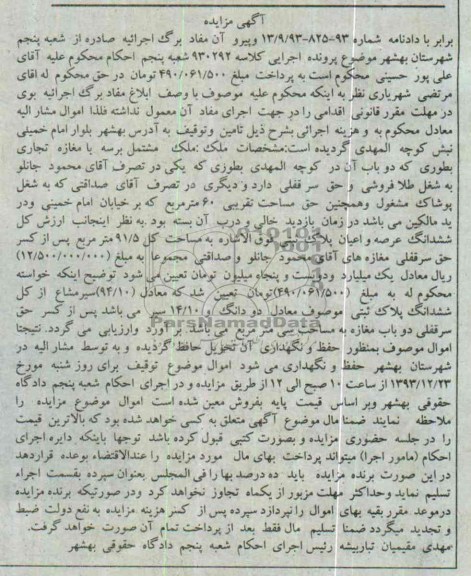 آگهی مزایده
برابر با دادنامه شماره ۹۳-۸۲۵-۱۳/۹/۹۳ وپیرو آن مفاد برگ اجرائیه صادره از شعبه پنجم
شهرستان بهشهر موضوع پرونده اجرایی کلاسه ۹۳۰۲۹۲ شعبه پنجم احکام محکوم علیه آقای
علی پور حسینی محکوم است به پرداخت مبلغ ۴۹۰/۰۶۱/۵۰۰ تومان در حق محکوم له اقای
مرتضی شهریاری نظر به اینکه محکوم علیه موصوف با وصف ابلاغ مفاد برگ اجرائیه بوی
در مهلت مقرر قانونی اقدامی را در جهت اجرای مفاد آن معمول نداشته فلذا اموال مشار الیه
معادل محکوم به و هزینه اجرائی بشرح ذیل تامین وتوقیف به آدرس بهشهر بلوار امام خمینی
نبش کوچه المهدی گردیده است:مشخصات ملک :ملک مشتمل برسه با مغازه تجاری
بطوری که دو باب آن در کوچه المهدی بطورزی که یکی در تصرف آقای محمود جانلو
به شغل طلا فروشی و حق سر قفلی دارد و دیگری در تصرف آقای صداقتی که به شغل
پوشاک مشغول وهمچنین حق مساحت تقریبی ۶۰ مترمربع که بر خیابان امام خمینی ودر
ید مالکین می باشد در زمان بازدید خالی و درب آن بسته بود .به نظر اینجانب ارزش کل
ششدانگ عرصه و اعیان پلاک فوق الاشاره به مساحت کل ۹۱/۵ متر مربع پس از کسر
حق سرقفلی مغازه های آقای محمود جانلو و صداقتی مجموعا به مبلغ (۱۲/۵۰۰/۰۰۰/۰۰۰)
ریال معادل یک میلیارد ودویست و پنجاه میلیون تومان تعیین می شود توضیح اینکه خواسته
محکوم له به مبلغ (۴۹۰/۰۶۱/۵۰۰)تومان تعیین شد که معادل (۹۴/۱۰)سیرمشاع از کل
ششدانگ پلاک ثبتی موصوف معادل دو دانگ و ۱۴/۱۰ سیر می باشد پس از کسر حق
سرقفلی دو باب مغازه به مساحت سی متر مربع می باشد بر آورد وارزیابی می گردد. نتیجتا
اموال موصوف بمنظور حفظ و نگهداری آن تحویل حافظ گردیده و به توسط مشار الیه در
شهرستان بهشهر حفظ و نگهداری می شود اموال موضوع توقیف برای روز شنبه مورخ
۱۳۹۳/۱۲/۲۳ از ساعت ۱۰ صبح الی ۱۲ از طریق مزایده و در اجرای احکام شعبه پنجم دادگاه
حقوقی بهشهر وبر اساس قیمت پایه بفروش معین شده است اموال موضوع مزایده را
ملاحظه نمایند ضمنا مال موضوع آگهی متعلق به کسی خواهد شده بود که بالاترین قیمت
را در جلسه حضوری مزایده و بصورت کتبی قبول کرده باشد توجها باینکه دایره اجرای
احکام (مامور اجرا) میتواند پرداخت بهای مال مورد مزایده را عندالاقتضاء بوعده قراردهد
در این صورت برنده مزایده باید ده درصد بها را فی المجلس بعنوان سپرده بقسمت اجراء
تسلیم نماید وحداکثر مهلت مزبور از یکماه تجاوز نخواهد کرد ودر صورتیکه برنده مزایده
درموعد مقرر بقیه بهای اموال را نپردازد سپرده پس از کسر هزینه مزایده به نفع دولت ضبط
و تجدید میگردد ضمنا تسلیم مال فقط بعد از پرداخت تمام آن صورت خواهد گرفت.
مهدی مقیمیان تباربیشه رئیس اجرای احکام شعبه پنجم دادگاه حقوقی بهشهر
ParsNamadData